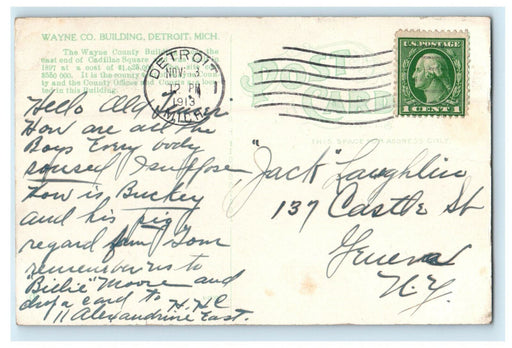 WAYNE CO. BUILDING, DETROIT, MICH.
The Wayne County Building
east end of Cadillac Square
1897 at a cost of
$550 000. It is the county
ty and the County Offices and Courts
ed in this building.
DETROIT
NOV 3
12 PM
1913
MICH.
1
POST
CARD
THIS SPACE FOR ADDRESS ONLY
U.S. POSTAGE
1 CENT 1
Hello Old
How are all the
Boys Every body
soused I suppose
how is Buckey
and his pig
regard from Tom
remember us to
"Billie" Moore and
drop a card to H.H.C
11 Alexandrine East.
"Jack" Laughlin
137 Castle St
Geneva
N.Y.